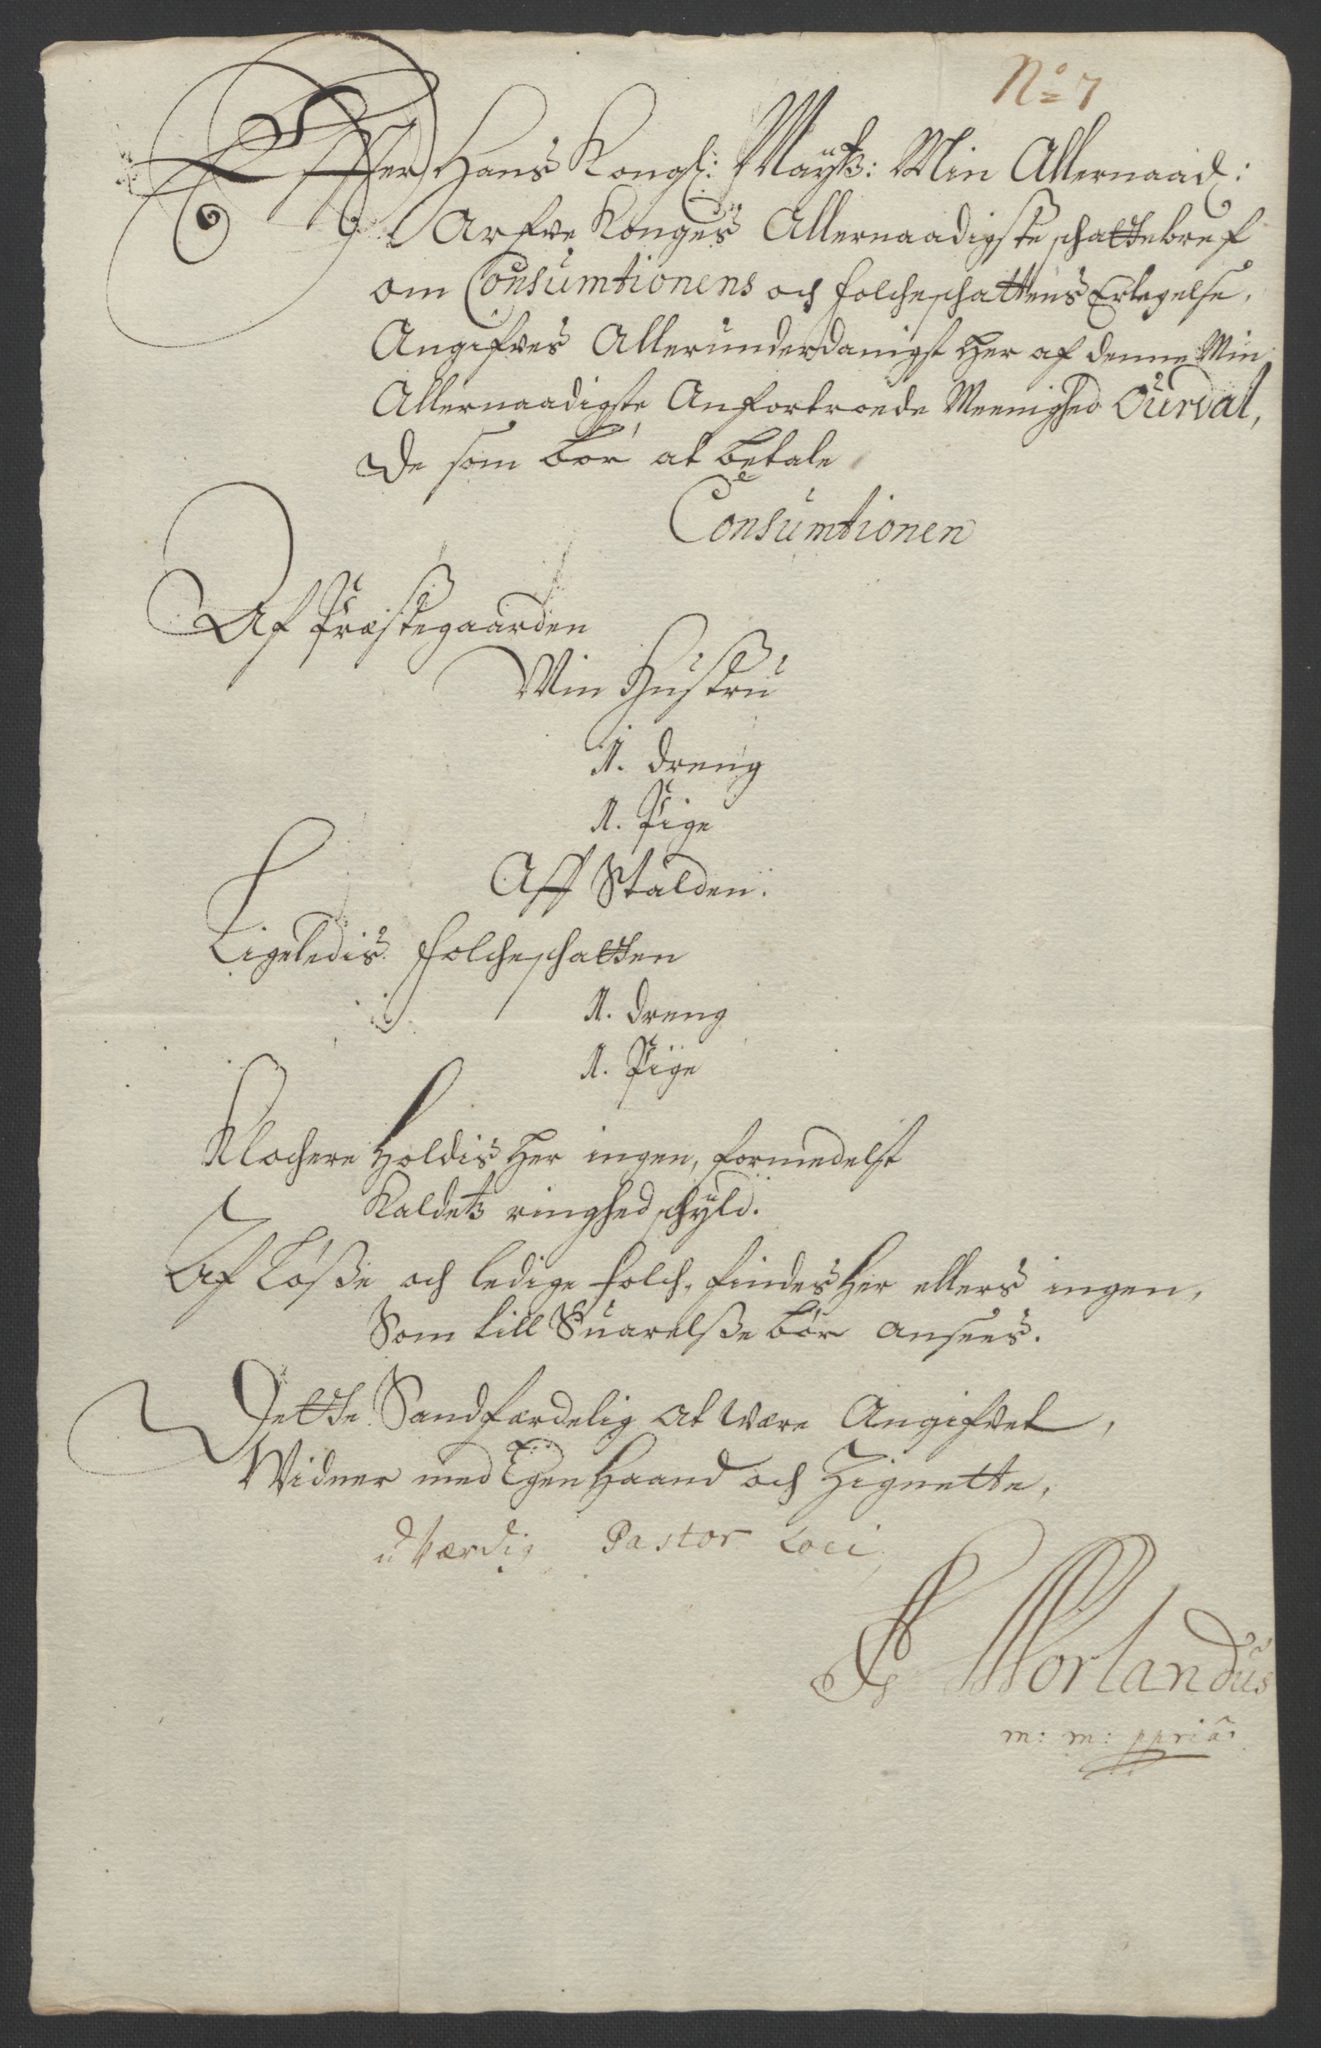 No 7
Effter Hans Kongl: Mayttz: Min Allernaad:
Arfve Konges Allernaadigste schattebref
om Consumtionens och folcheschattens Erlegelse,
Angifves Allerunderdanigst her af denne Min
Allernaadigste Anfortroede Meenighed Ourdal,
De som bør at betale
Consumtionen
Af Præstegaarden
Min Hustru
1. dreng
1. Pige
Aff Stalden:
Ligeledis folcheschatten
1. dreng
1. Pige
Klochere Holdis her ingen, formedelst
Kaldetz ringhed schyld.
Af Løsse och ledige folch, findes her ellers ingen,
Som till Suarelsse bør ansees.
Dette Sandfærdelig at være Angifvet,
Widner med Egen Haand och Zignette,
uværdig Pastor Loci
Morlandus
m: m: ppria